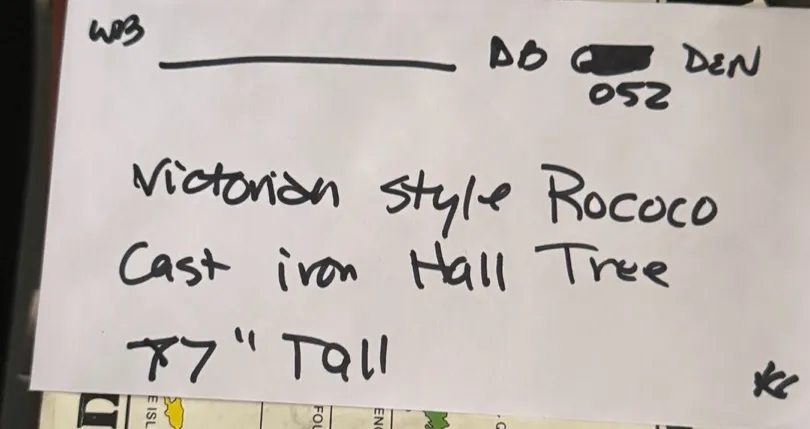 WB DB DEN
052
Victorian style Rococo
Cast iron Hall Tree
77" Tall
E ISL
FOL
EN